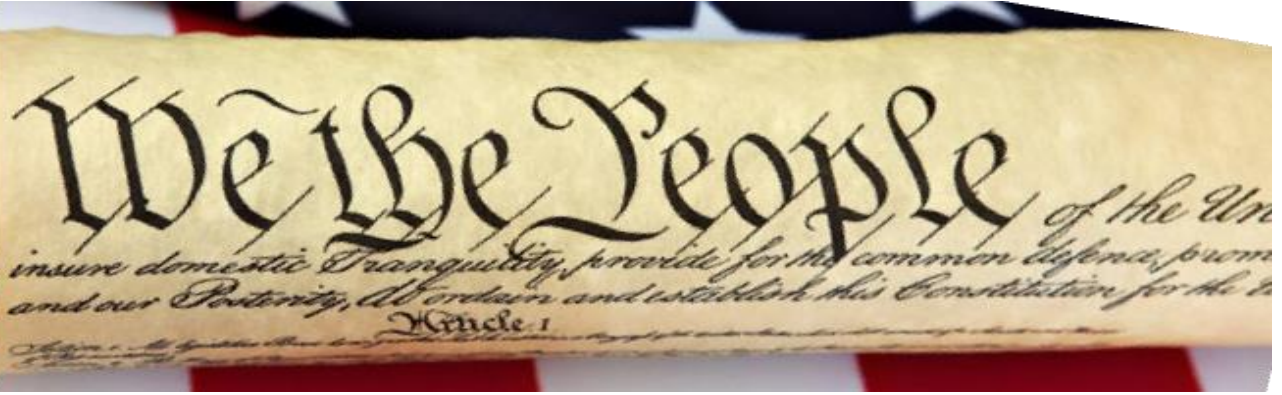 We the People of the Un
insure domestic Tranquility, provide for the common defence, prom
and our Posterity, do ordain and establish this Constitution for the
Article. I